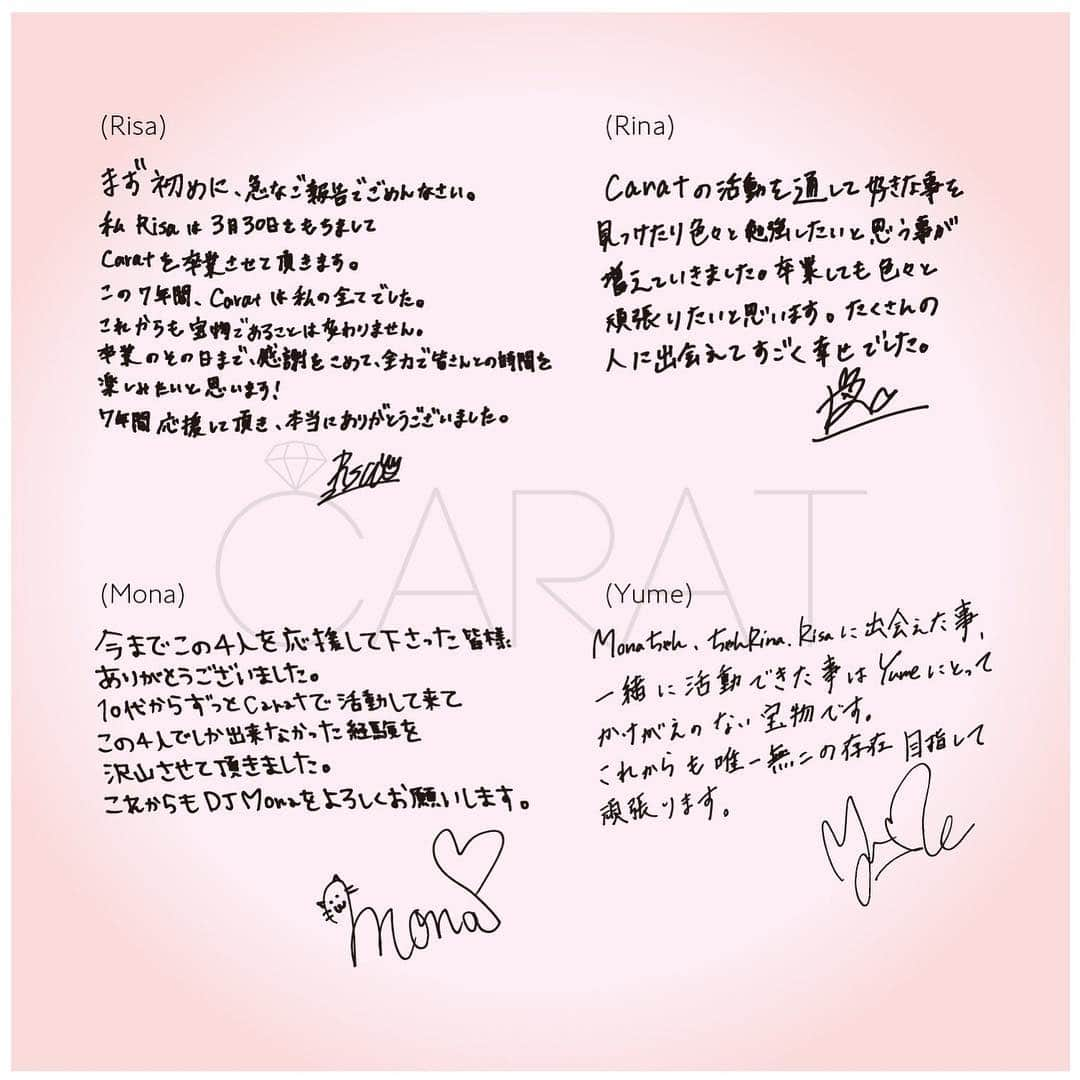 (Risa)
まず初めに、急なご報告でごめんなさい。
私 Risaは3月30日をもちまして
Caratを卒業させて頂きます。
この7年間、Caratは私の全てでした。
これからも宝物であることは変わりません。
卒業のその日まで、感謝をこめて、全力で皆さんとの時間を
楽しみたいと思います!
7年間応援して頂き、本当にありがとうございました。
Risa
(Rina)
Caratの活動を通して好きな事を
見つけたり色々と勉強したいと思う事が
増えていきました。卒業しても色々と
頑張りたいと思います。たくさんの
人に出会えてすごく幸せでした。
CARAT
(Mona)
今までこの4人を応援して下さった皆様
ありがとうございました。
10代からずっとCaratで活動して来て
この4人でしか出来なかった経験を
沢山させて頂きました。
これからもDJ Monaをよろしくお願いします。
Mona
(Yume)
Monaちゃん、ちゃんRina、Risaに出会えた事、
一緒に活動できた事はYumeにとって
かけがえのない宝物です。
これからも唯一無二の存在目指して
頑張ります。
Yume